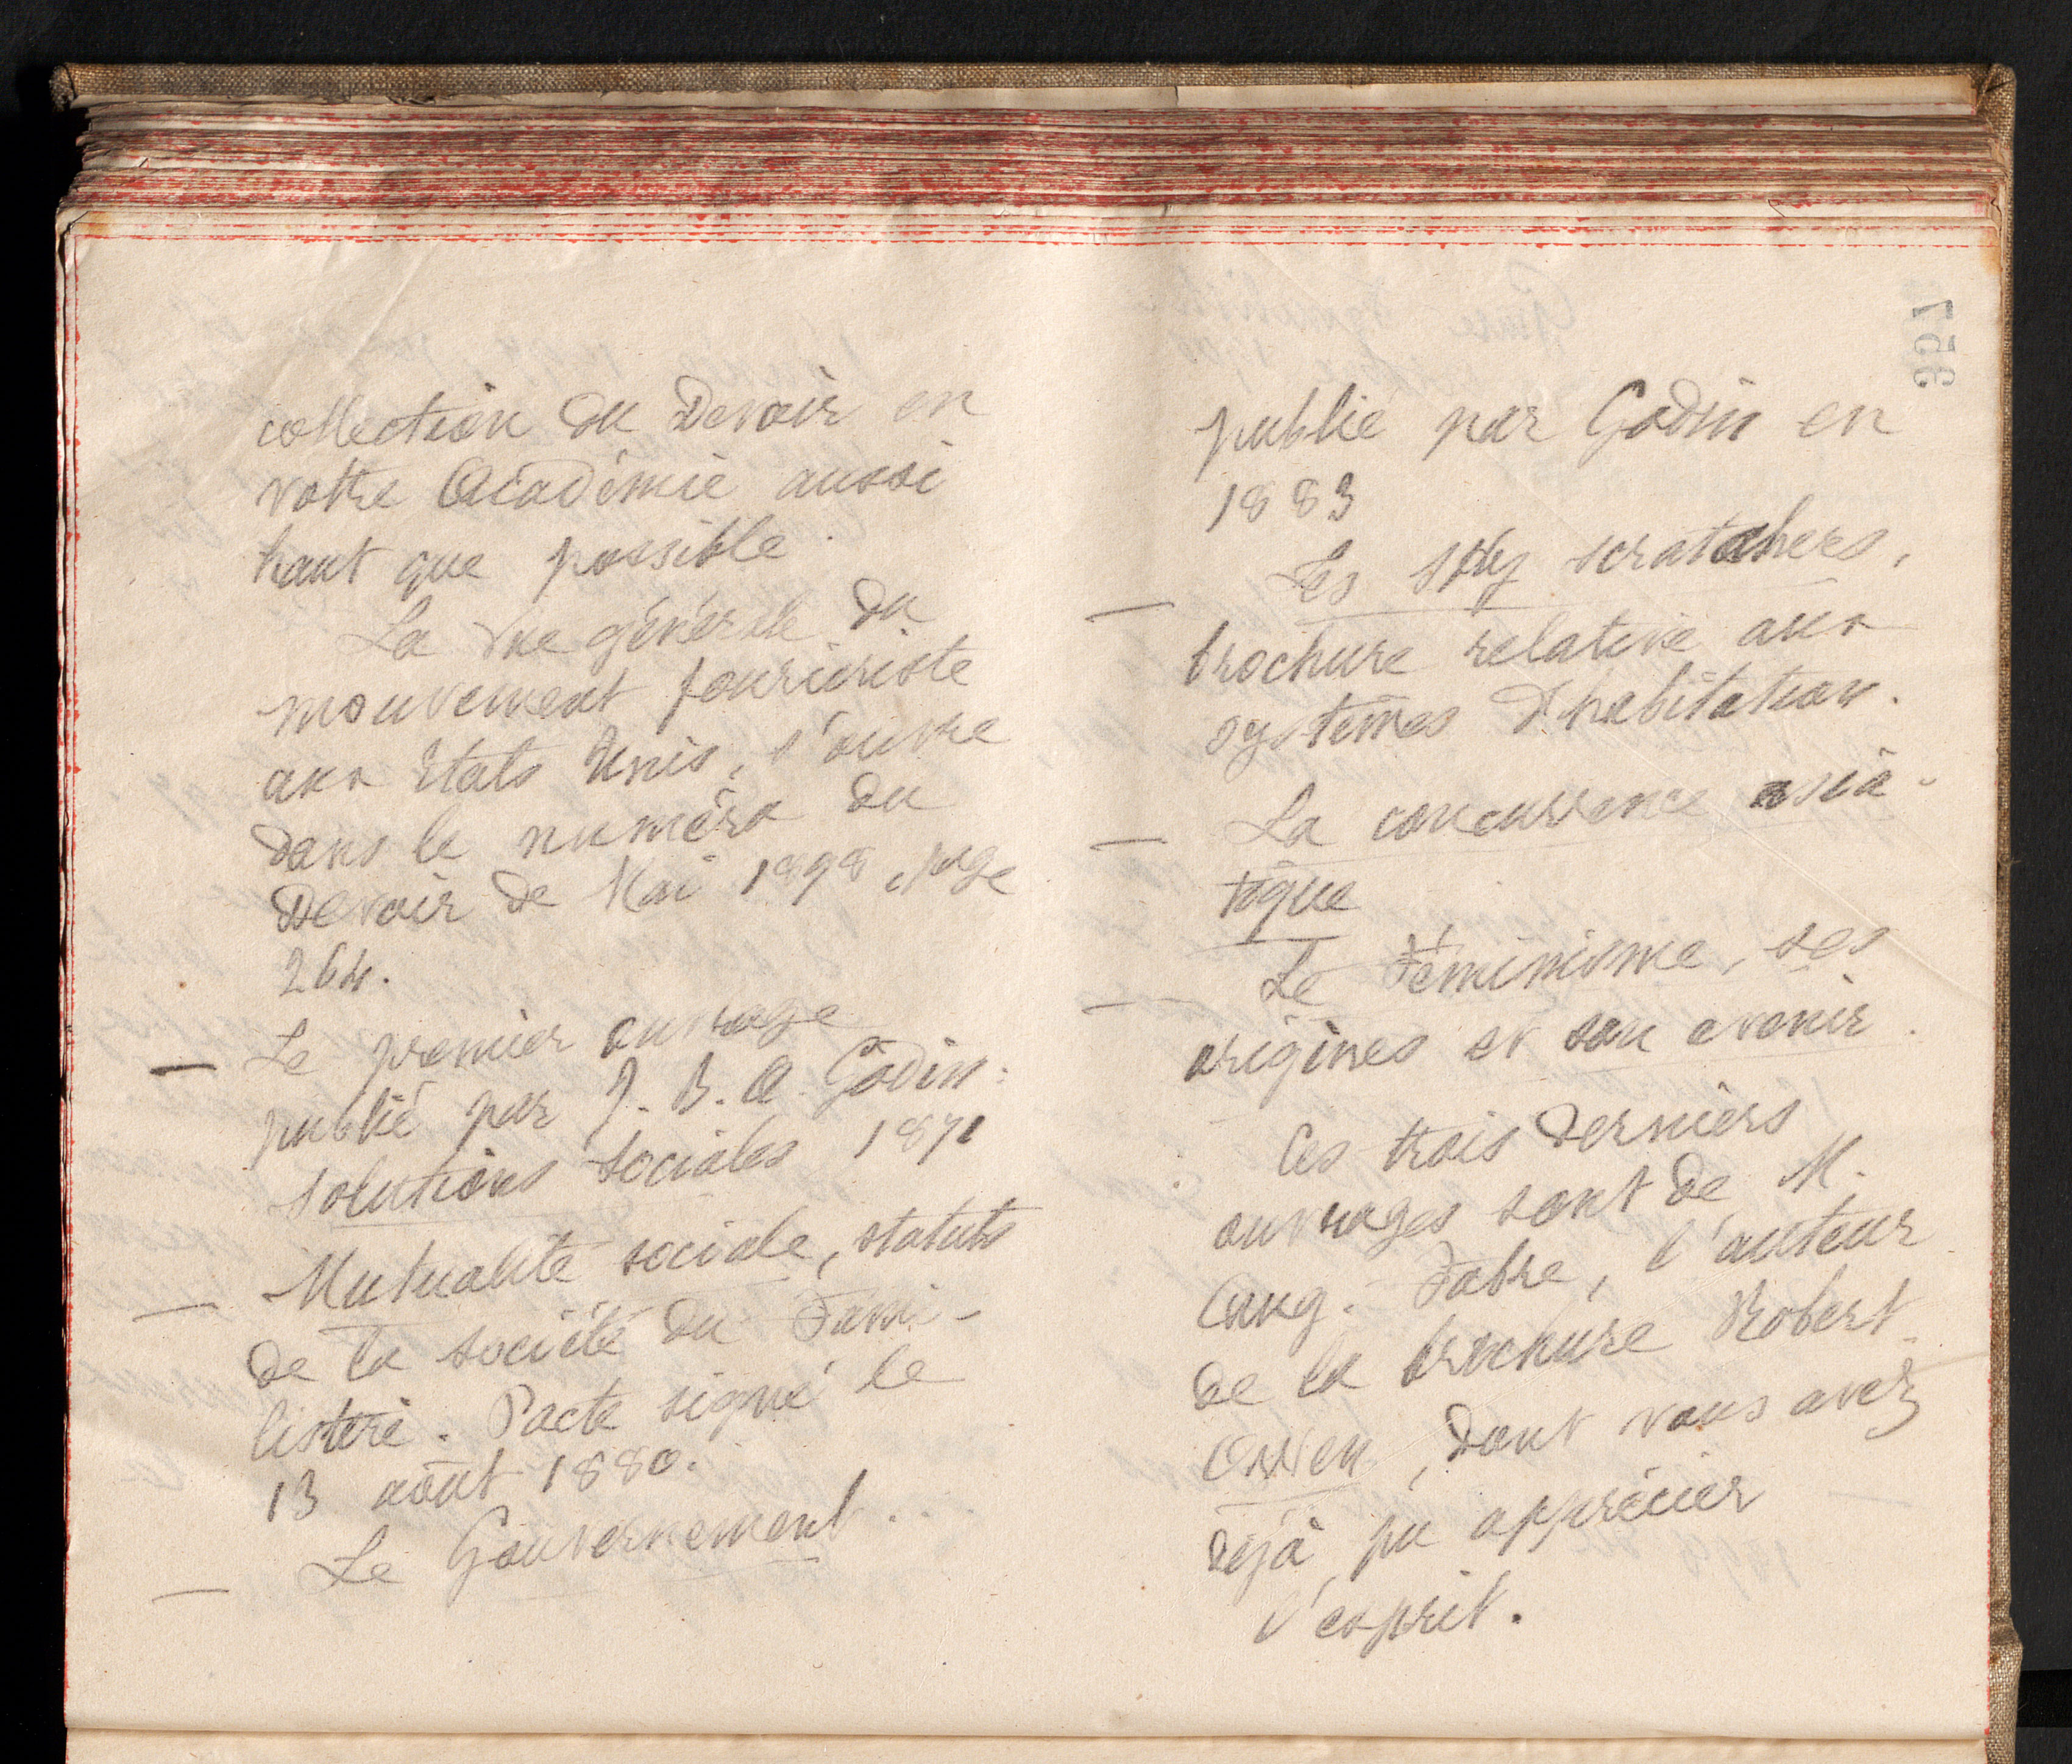 collection du Devoir en
votre Académie aussi
haut que possible.
La vue générale du
mouvement fouriériste
aux Etats Unis, s'ouvre
dans le numéro du
Devoir de Mai 1898, page
264.
— Le premier ouvrage
publié par J. B. A. Godin:
Solutions sociales 1871
— Mutualité sociale, statuts
de la société du Fami-
listère. Pacte signé le
13 août 1880.
— Le Gouvernement...
357
publié par Godin en
1883
— Les Sky scratchers,
brochure relative aux
systèmes d'habitation.
— La concurrence asia-
tique
— Le Féminisme, ses
origines et son avenir.
Ces trois derniers
ouvrages sont de M.
Aug. Fabre, l'auteur
de la brochure Robert
Owen, dont vous avez
déjà pu apprécier
l'esprit.